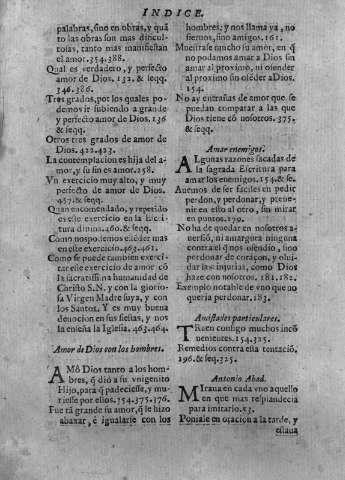 INDICE.
palabras, sino en obras, y quã
to las obras son mas dificul-
tosas, tanto mas manifiestan
el amor. 354. 388.
Qual es verdadero, y perfecto
amor de Dios. 132. & seqq.
346. 386.
Tres grados, por los quales po-
demos ir subiendo a grande
y perfecto amor de Dios. 136
& seqq.
Otros tres grados de amor de
Dios. 422. 423.
La contemplacion es hija del a-
mor, y su fin es amor. 258.
Vn exercicio muy alto, y muy
perfecto de amor de Dios.
457. & seqq.
Quan encomendado, y repetido
es este exercicio en la Escri-
tura diuina. 460. & seqq.
Como nos podemos estẽder mas
en este exercicio. 463. 461.
Como se puede tambien exerci-
tar este exercicio de amor cõ
la sacratissima humanidad de
Christo S.N. y con la glorio-
sa Virgen Madre suya, y con
los Santos. Y es muy buena
deuocion en sus fiestas, y nos
la enseña la Iglesia. 463. 464.
Amor de Dios con los hombres.
AMó Dios tanto a los hom-
bres, q̃ dió a su vnigenito
Hijo, para q̃ padeciesse, y mu-
riesse por ellos. 354. 375. 376.
Fue tã grande su amor, q̃ le hizo
abaxar, è igualarse con los
hombres; y nos llama ya, no
sieruos, sino amigos. 161.
Muestrase mucho su amor, en q̃
no podamos amar a Dios sin
amar al proximo, ni ofender
al proximo sin ofẽder a Dios.
154.
No ay entrañas de amor que se
puedan comparar a las que
Dios tiene cõ nosotros. 375.
& seqq.
Amar enemigos.
ALgunas razones sacadas de
la sagrada Escritura para
amar los enemigos. 154. & se.
Auemos de ser faciles en pedir
perdon, y perdonar, y preue-
nir en esto al otro, sin mirar
en puntos. 179.
No ha de quedar en nosotros a-
uersiõ, ni amargura ninguna
contra el q̃ nos ofendio, sino
perdonar de coraçon, y olui-
dar las injurias, como Dios
haze con nosotros. 181. 182.
Exemplo notable de vno que no
queria perdonar. 183.
Amistades particulares.
TRaen consigo muchos incõ
uenientes. 154. 325.
Remedios contra esta tentaciõ.
196. & seq. 325.
Antonio Abad.
MIraua en cada vno aquello
en que mas resplandecia
para imitarlo. 53.
Poniase en oracion a la tarde, y
estaua